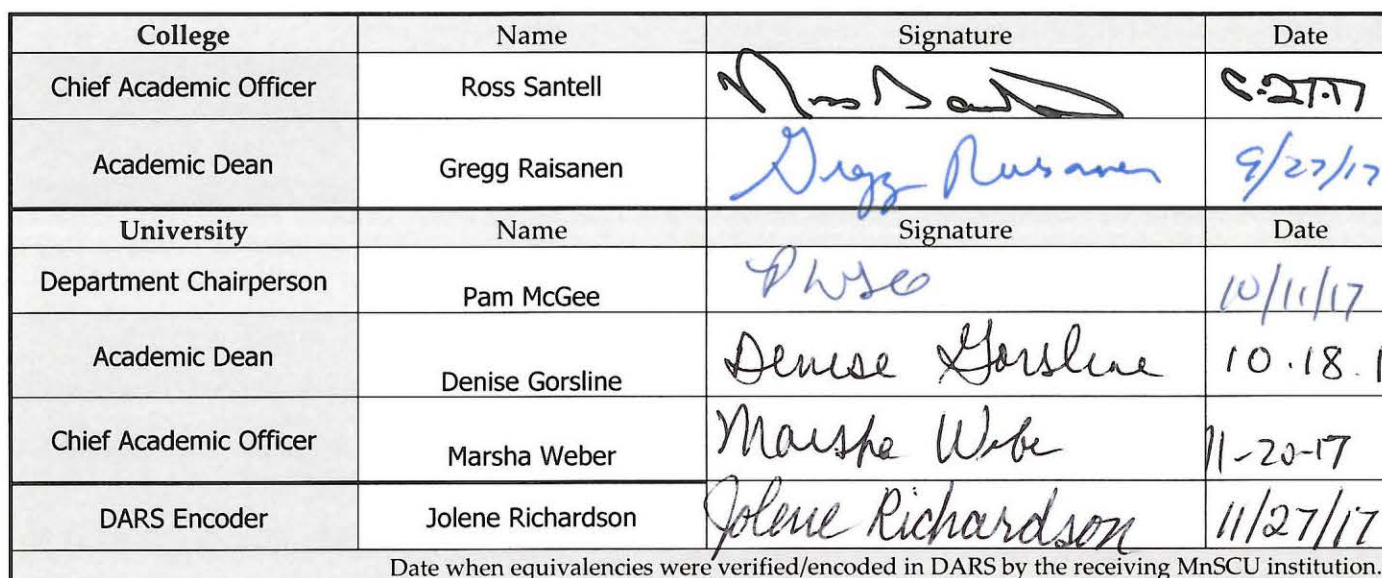 College Name Signature Date
Chief Academic Officer Ross Santell Ross Santell
Academic Dean Gregg Raisanen Gregg Raisanen 9/27/17
University Name Signature Date
Department Chairperson Pam McGee 10/11/17
Academic Dean Denise Gorsline Denise Gorsline 10.18.1
Chief Academic Officer Marsha Weber Marsha Weber 11-20-17
DARS Encoder Jolene Richardson Jolene Richardson 11/27/17
Date when equivalencies were verified/encoded in DARS by the receiving MnSCU institution.